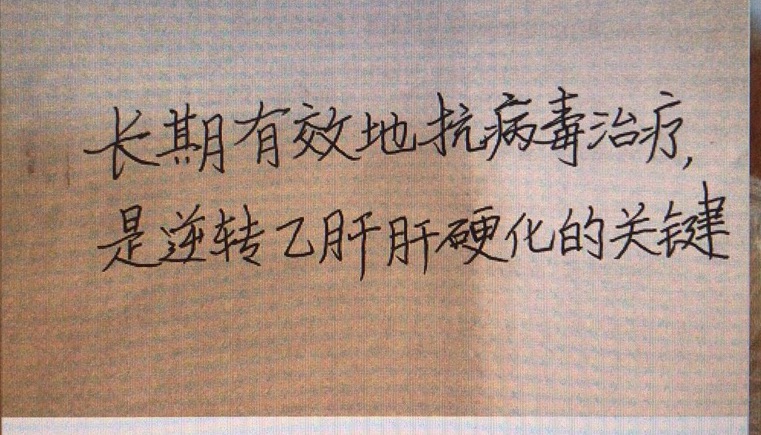 长期有效地抗病毒治疗,
是逆转乙肝肝硬化的关键